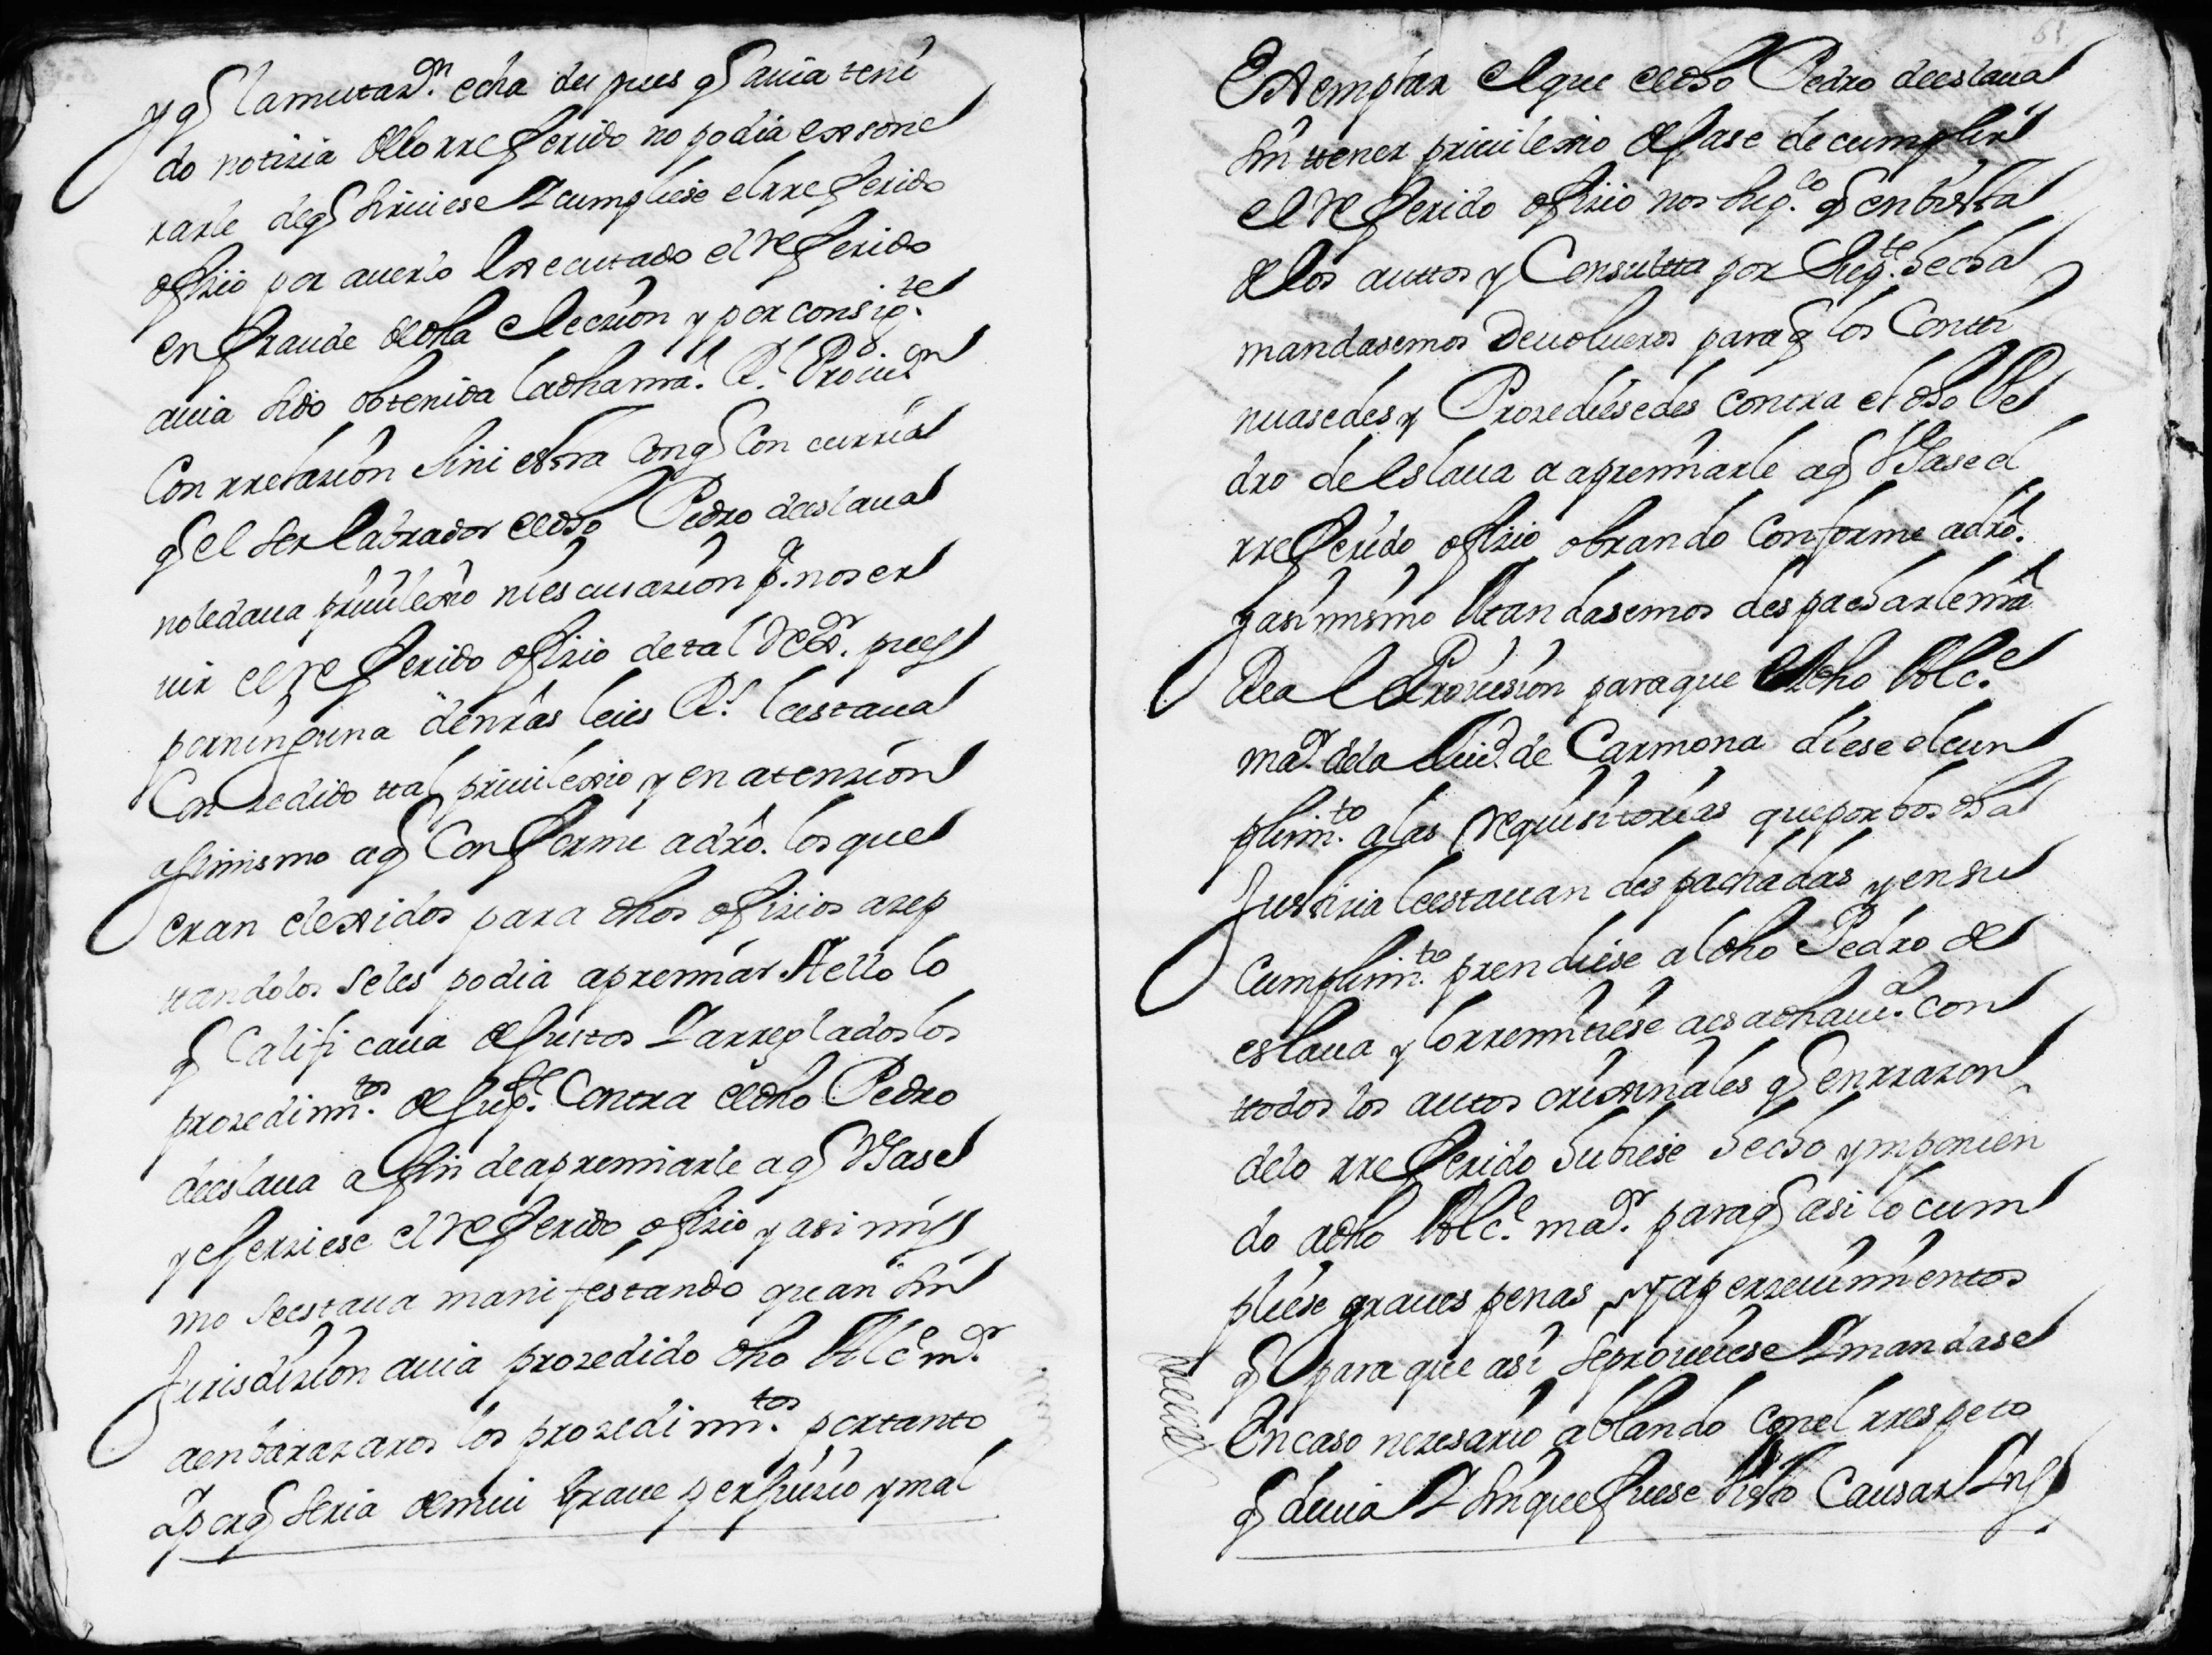 y q lamutaz.on echa des pues q auia teni
do notizia dello rreferido no podia exsone
rarle deq siruiese Y cumpliese elrreferido
ofizio por auerlo executado el referido
en fraude dedha eleczion y por consig.te
auia sido obtenida ladhanrã. Rl. Prouis.on
Con rrelazion sini estra Conq Con curria
q el ser labrador eldho Pedro deeslaua
noledaua priuilexio niescusazion p.a noser
uir el referido ofizio detal Rexdor. pues
porninguna denrãs leies Rs. leestaua
Conzedido ttal priuilexio y en atenzion
asimismo aq Conforme adrõ. los que
eran elexidos para dhos ofizios azep
ttandolos seles podia apremiar Aello lo
q Califi caua deJustos Y arreglados los
prozedim.tos de sup.te Contra eldho Pedro
deeslaua afin deapremiarle aq Usase
y eJerziese el referido ofizio y asi mis
mo seestaua manifestando quan sin
Jurisdizion auia prozedido dho Alc.e m.or
aenbarazaros los prozedim.tos portanto
Yporq seria demui graue perJuizio ymal
61
Exemplar elque eldho Pedro deeslaua
sin ttener priuilexio deJase decumplir
el referido ofizio nos sup.co q enbista
delos auttos y Consultta por sup.te hecha
mandasemos deuolueros paraq los Contti
nuasedes y Prozediesedes contra el dho Pe
dro de eslaua a apremiarle aq Usase el
rreferido ofizio obrando conforme adrõ.
Jasimismo Mandasemos despacharle nrã
Real Prouision paraque eldho Alc.e
maor. dela Ciud. de Carmona diese elcun
plim.to alas requisitorias que por bos dha
Justizia leestauan despachadas y en su
Cumplim.to prendiese aldho Pedro de
eslaua y lorremitiese aesadhauia. con
ttodos los autos orixinales q enrrazon
delo rreferido hubiese hecho ymponien
do adho Alc.e maor. paraq asi lo cum
pliese graues penas y aperzeuimientos
q para que asi seprouiese Ymandase
Encaso nezesario ablando conel rrespeto
q deuia Y sinque fuese bisto Causar Ins